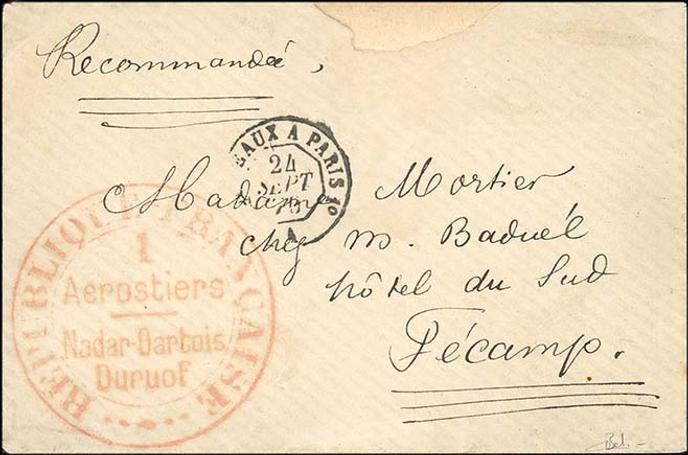 Recommandée,
EAUX A PARIS 1º
24
SEPT
70
Madame Mortier
chez M. Baduél
hôtel du Sud
Fécamp.
REPUBLIQUE FRANÇAISE
1
Aerostiers
Nadar-Dartois
Duruof